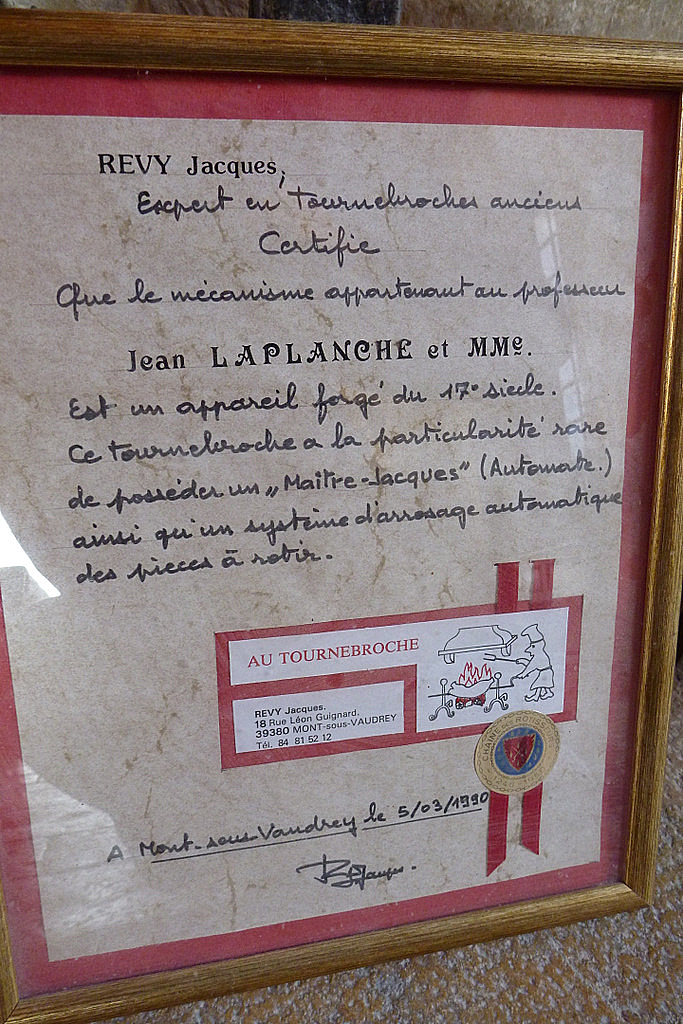 REVY Jacques,
Expert en Tournebroches anciens
Certifie
Que le mécanisme appartenant au professeur
Jean LAPLANCHE et MMe.
Est un appareil forgé du 17° siecle.
Ce tournebroche a la particularité rare
de posséder un „Maître-Jacques" (Automate.)
ainsi qu'un système d'arrosage automatique
des pieces à rotir.
AU TOURNEBROCHE
REVY Jacques.
18 Rue Léon Guignard.
39380 MONT-sous-VAUDREY
Tél. 84 81 52 12
CHAINE
ROTISSEURS
A Mont-sous Vaudrey le 5/03/1990